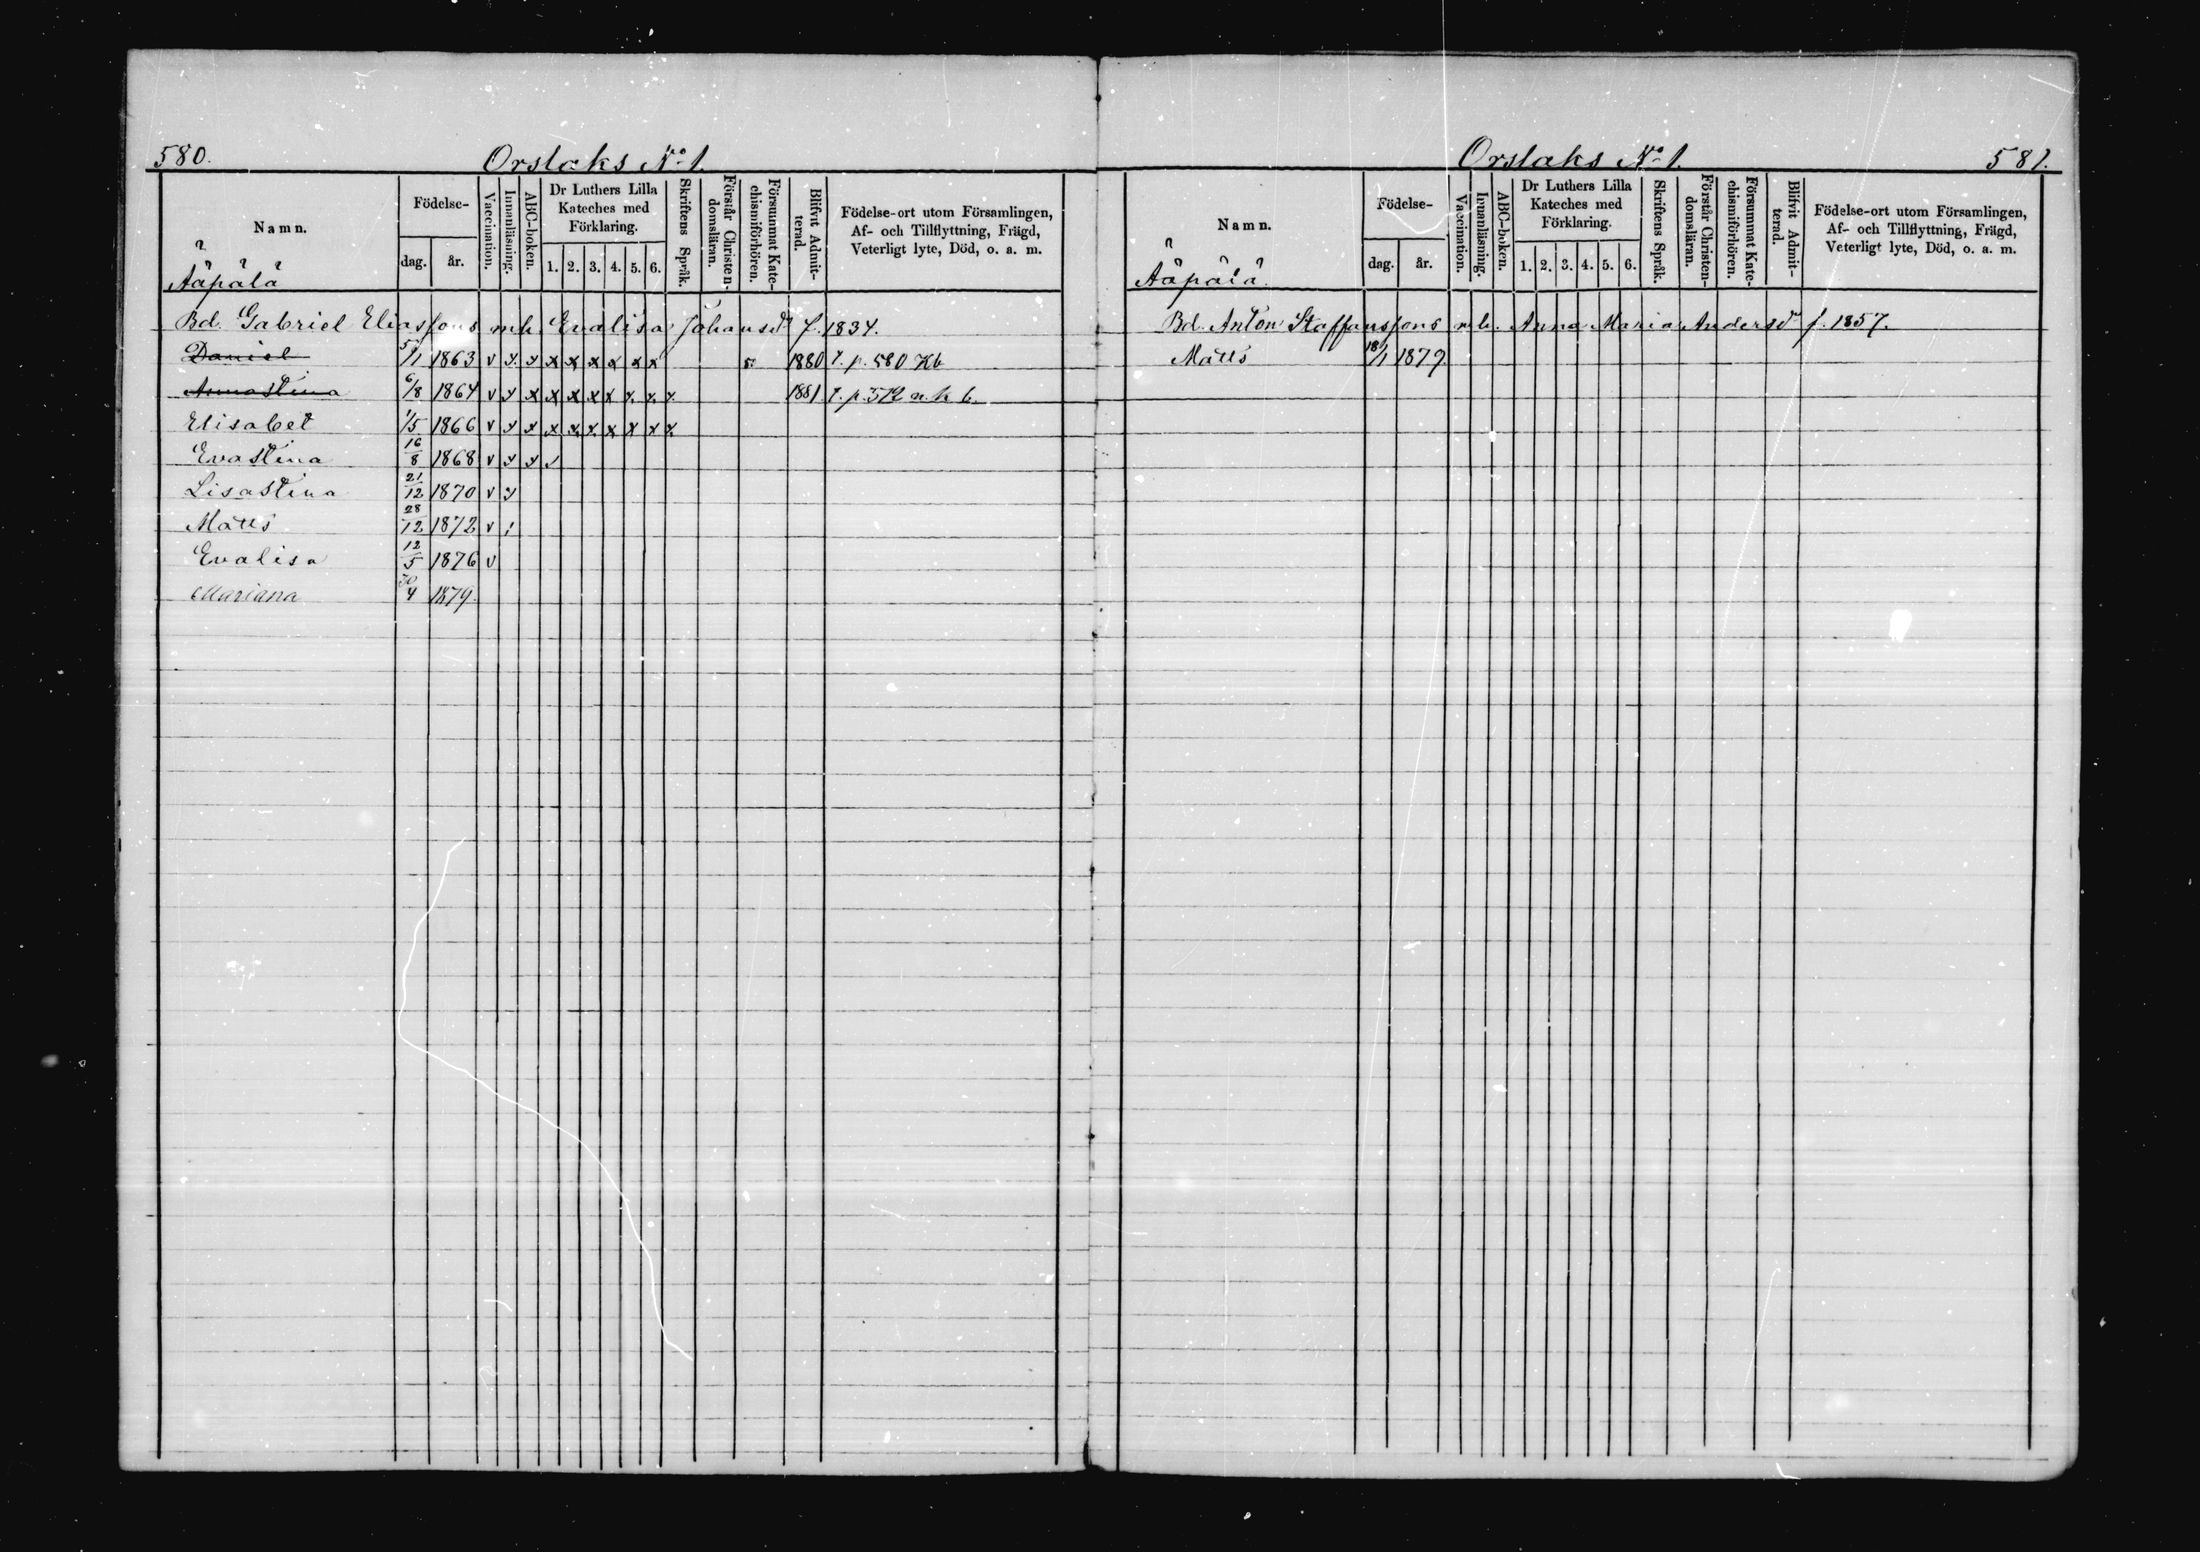 580.
Orslaks No 1.
Namn.
Födelse-
dag.
år.
Vaccination.
Innanläsning.
ABC-boken.
Dr Luthers Lilla Kateches med Förklaring.
1. 2. 3. 4. 5. 6.
Skriftens Språk.
Förstår Christendomsläran.
Försummat Katechismiförhören.
Blifvit Admitterad.
Födelse-ort utom Församlingen,
Af- och Tillflyttning, Frägd,
Veterligt lyte, Död, o. a. m.
Ääpälä
Bd. Gabriel Eliassons m h. Evalisa Johansdr f. 1834.
Daniel 5/1 1863 v x x x x x x x x 5. 1880 t. p. 580 Kb
Annastina 6/8 1864 v x x x x x x x x x 1881 t. p. 572 n k b.
Elisabet 1/5 1866 v x x x x x x x x x
Evastina 16/8 1868 v x x /
Lisastina 21/12 1870 v x
Matts 28/12 1872 v /
Evalisa 12/5 1876 v
Mariana 30/4 1879.
Orslaks No 1.
581.
Namn.
Födelse-
dag.
år.
Vaccination.
Innanläsning.
ABC-boken.
Dr Luthers Lilla Kateches med Förklaring.
1. 2. 3. 4. 5. 6.
Skriftens Språk.
Förstår Christendomsläran.
Försummat Katechismiförhören.
Blifvit Admitterad.
Födelse-ort utom Församlingen,
Af- och Tillflyttning, Frägd,
Veterligt lyte, Död, o. a. m.
Ääpälä.
Bd. Anton Staffanssons m h. Anna Maria Andersdr f. 1857.
Matts 18/1 1879.